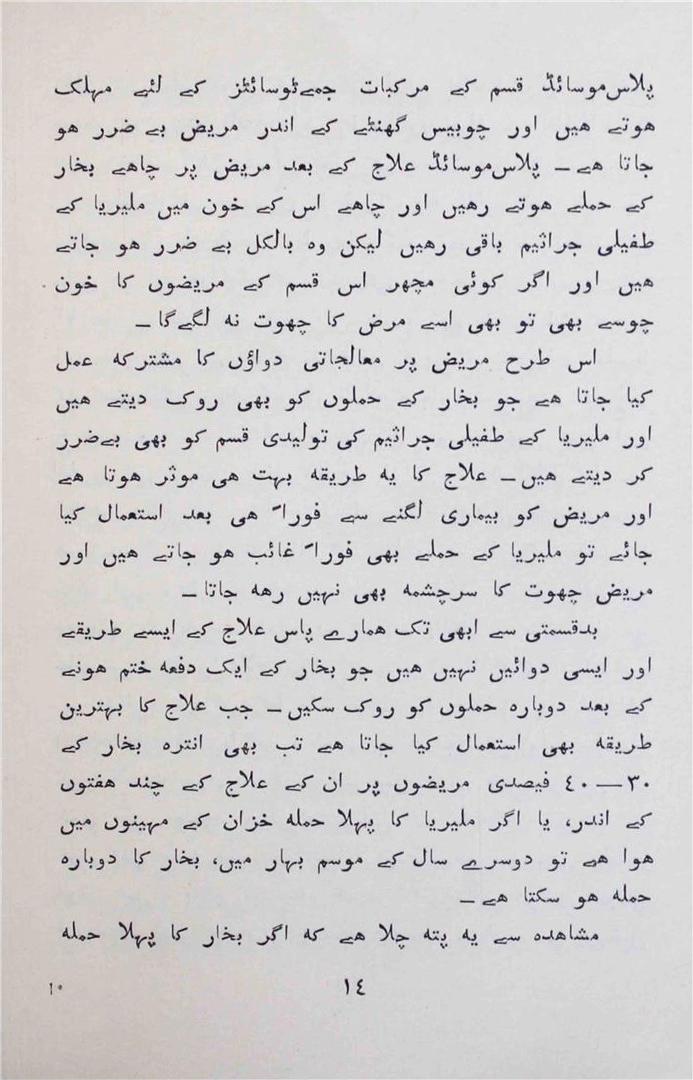 پلاس‌موسائڈ قسم کے مرکبات جمےٹوسائٹز کے لئے مہلک
ہوتے ہیں اور چوبیس گھنٹے کے اندر مریض بے ضرر ہو
جاتا ہے ـ پلاس‌موسائڈ علاج کے بعد مریض پر چاہے بخار
کے حملے ہوتے رہیں اور چاہے اس کے خون میں ملیریا کے
طفیلی جراثیم باقی رہیں لیکن وہ بالکل بے ضرر ہو جاتے
ہیں اور اگر کوئی مچھر اس قسم کے مریضوں کا خون
چوسے بھی تو بھی اسے مرض کا چھوت نہ لگےگا ـ
اس طرح مریض پر معالجاتی دواؤں کا مشترکہ عمل
کیا جاتا ہے جو بخار کے حملوں کو بھی روک دیتے ہیں
اور ملیریا کے طفیلی جراثیم کی تولیدی قسم کو بھی بےضرر
کر دیتے ہیں ـ علاج کا یہ طریقہ بہت ہی موثر ہوتا ہے
اور مریض کو بیماری لگنے سے فوراً ہی بعد استعمال کیا
جائے تو ملیریا کے حملے بھی فوراً غائب ہو جاتے ہیں اور
مریض چھوت کا سرچشمہ بھی نہیں رہ جاتا ـ
بدقسمتی سے ابھی تک ہمارے پاس علاج کے ایسے طریقے
اور ایسی دوائیں نہیں ہیں جو بخار کے ایک دفعہ ختم ہونے
کے بعد دوبارہ حملوں کو روک سکیں ـ جب علاج کا بہترین
طریقہ بھی استعمال کیا جاتا ہے تب بھی انترہ بخار کے
۳۰ — ٤۰ فیصدی مریضوں پر ان کے علاج کے چند ہفتوں
کے اندر، یا اگر ملیریا کا پہلا حملہ خزان کے مہینوں میں
ہوا ہے تو دوسرے سال کے موسم بہار میں، بخار کا دوبارہ
حملہ ہو سکتا ہے ـ
مشاہدہ سے یہ پتہ چلا ہے کہ اگر بخار کا پہلا حملہ
۱٤
۱۰